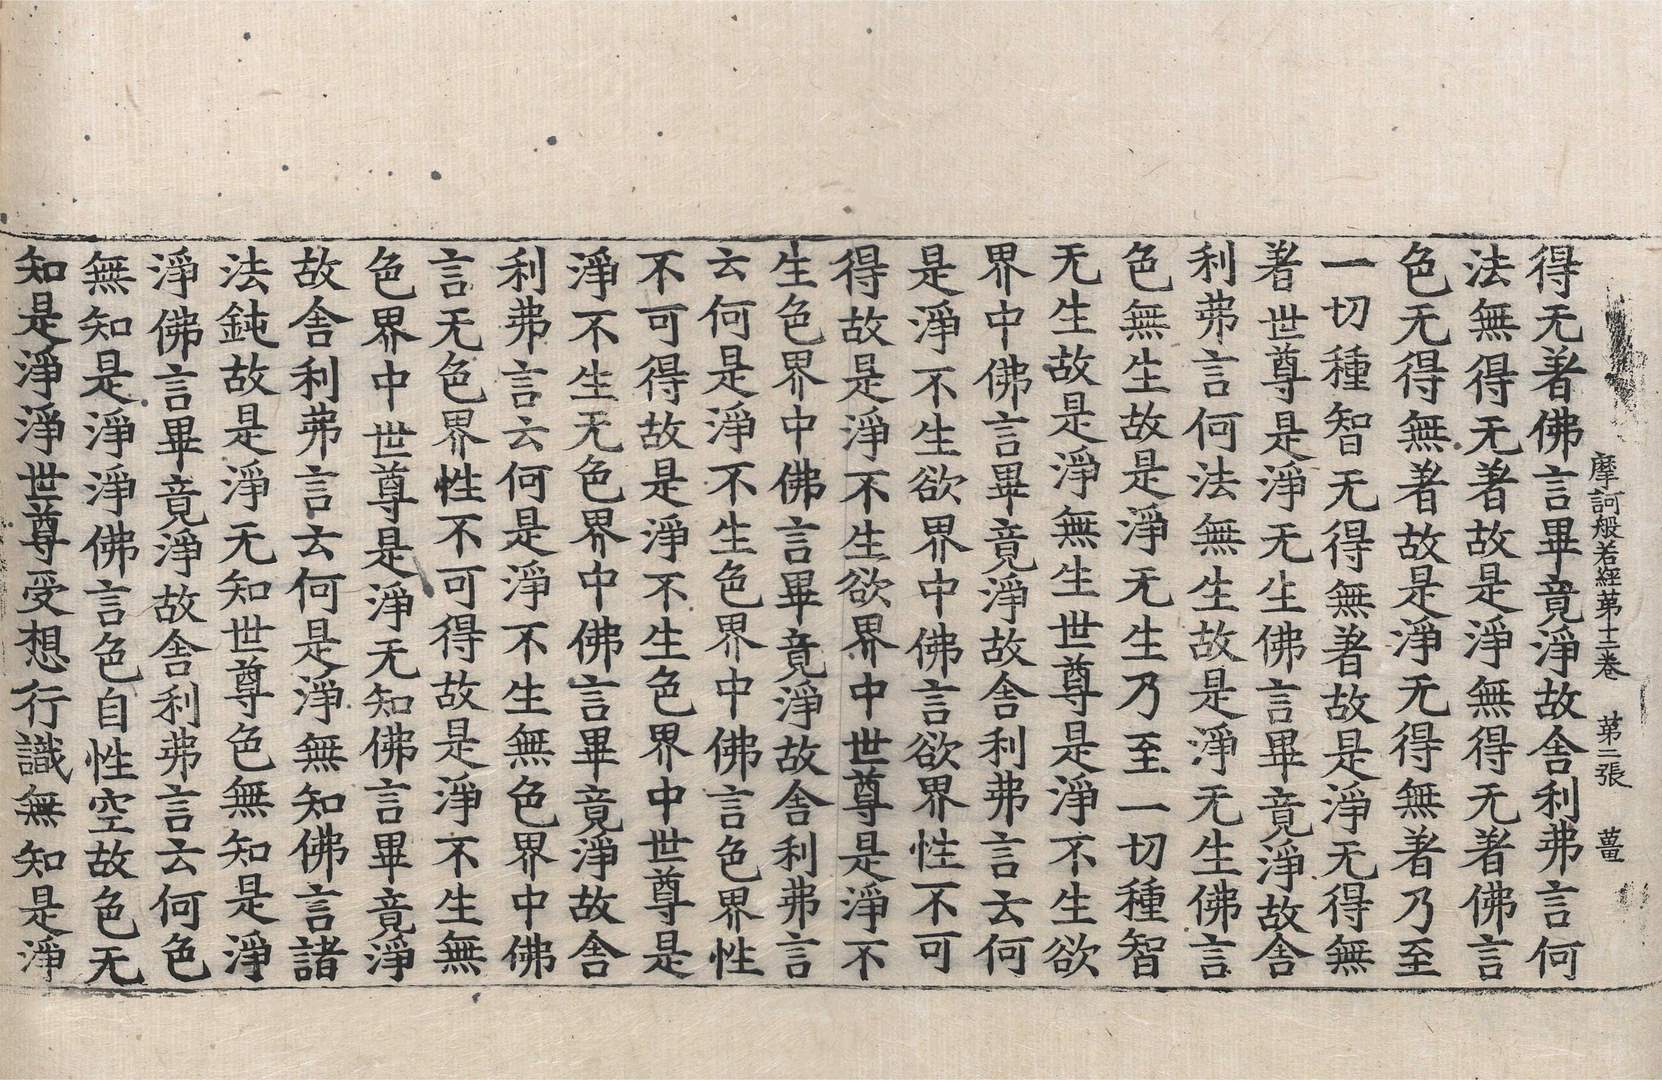 摩訶般若經第十二卷 第二張 薑
得无著佛言畢竟淨故舍利弗言何
法無得无著故是淨無得无著佛言
色无得無著故是淨无得無著乃至
一切種智无得無著故是淨无得無
著世尊是淨无生佛言畢竟淨故舍
利弗言何法無生故是淨无生佛言
色無生故是淨无生乃至一切種智
无生故是淨無生世尊是淨不生欲
界中佛言畢竟淨故舍利弗言云何
是淨不生欲界中佛言欲界性不可
得故是淨不生欲界中世尊是淨不
生色界中佛言畢竟淨故舍利弗言
云何是淨不生色界中佛言色界性
不可得故是淨不生色界中世尊是
淨不生无色界中佛言畢竟淨故舍
利弗言云何是淨不生無色界中佛
言无色界性不可得故是淨不生無
色界中世尊是淨无知佛言畢竟淨
故舍利弗言云何是淨無知佛言諸
法鈍故是淨无知世尊色無知是淨
淨佛言畢竟淨故舍利弗言云何色
無知是淨淨佛言色自性空故色无
知是淨淨世尊受想行識無知是淨